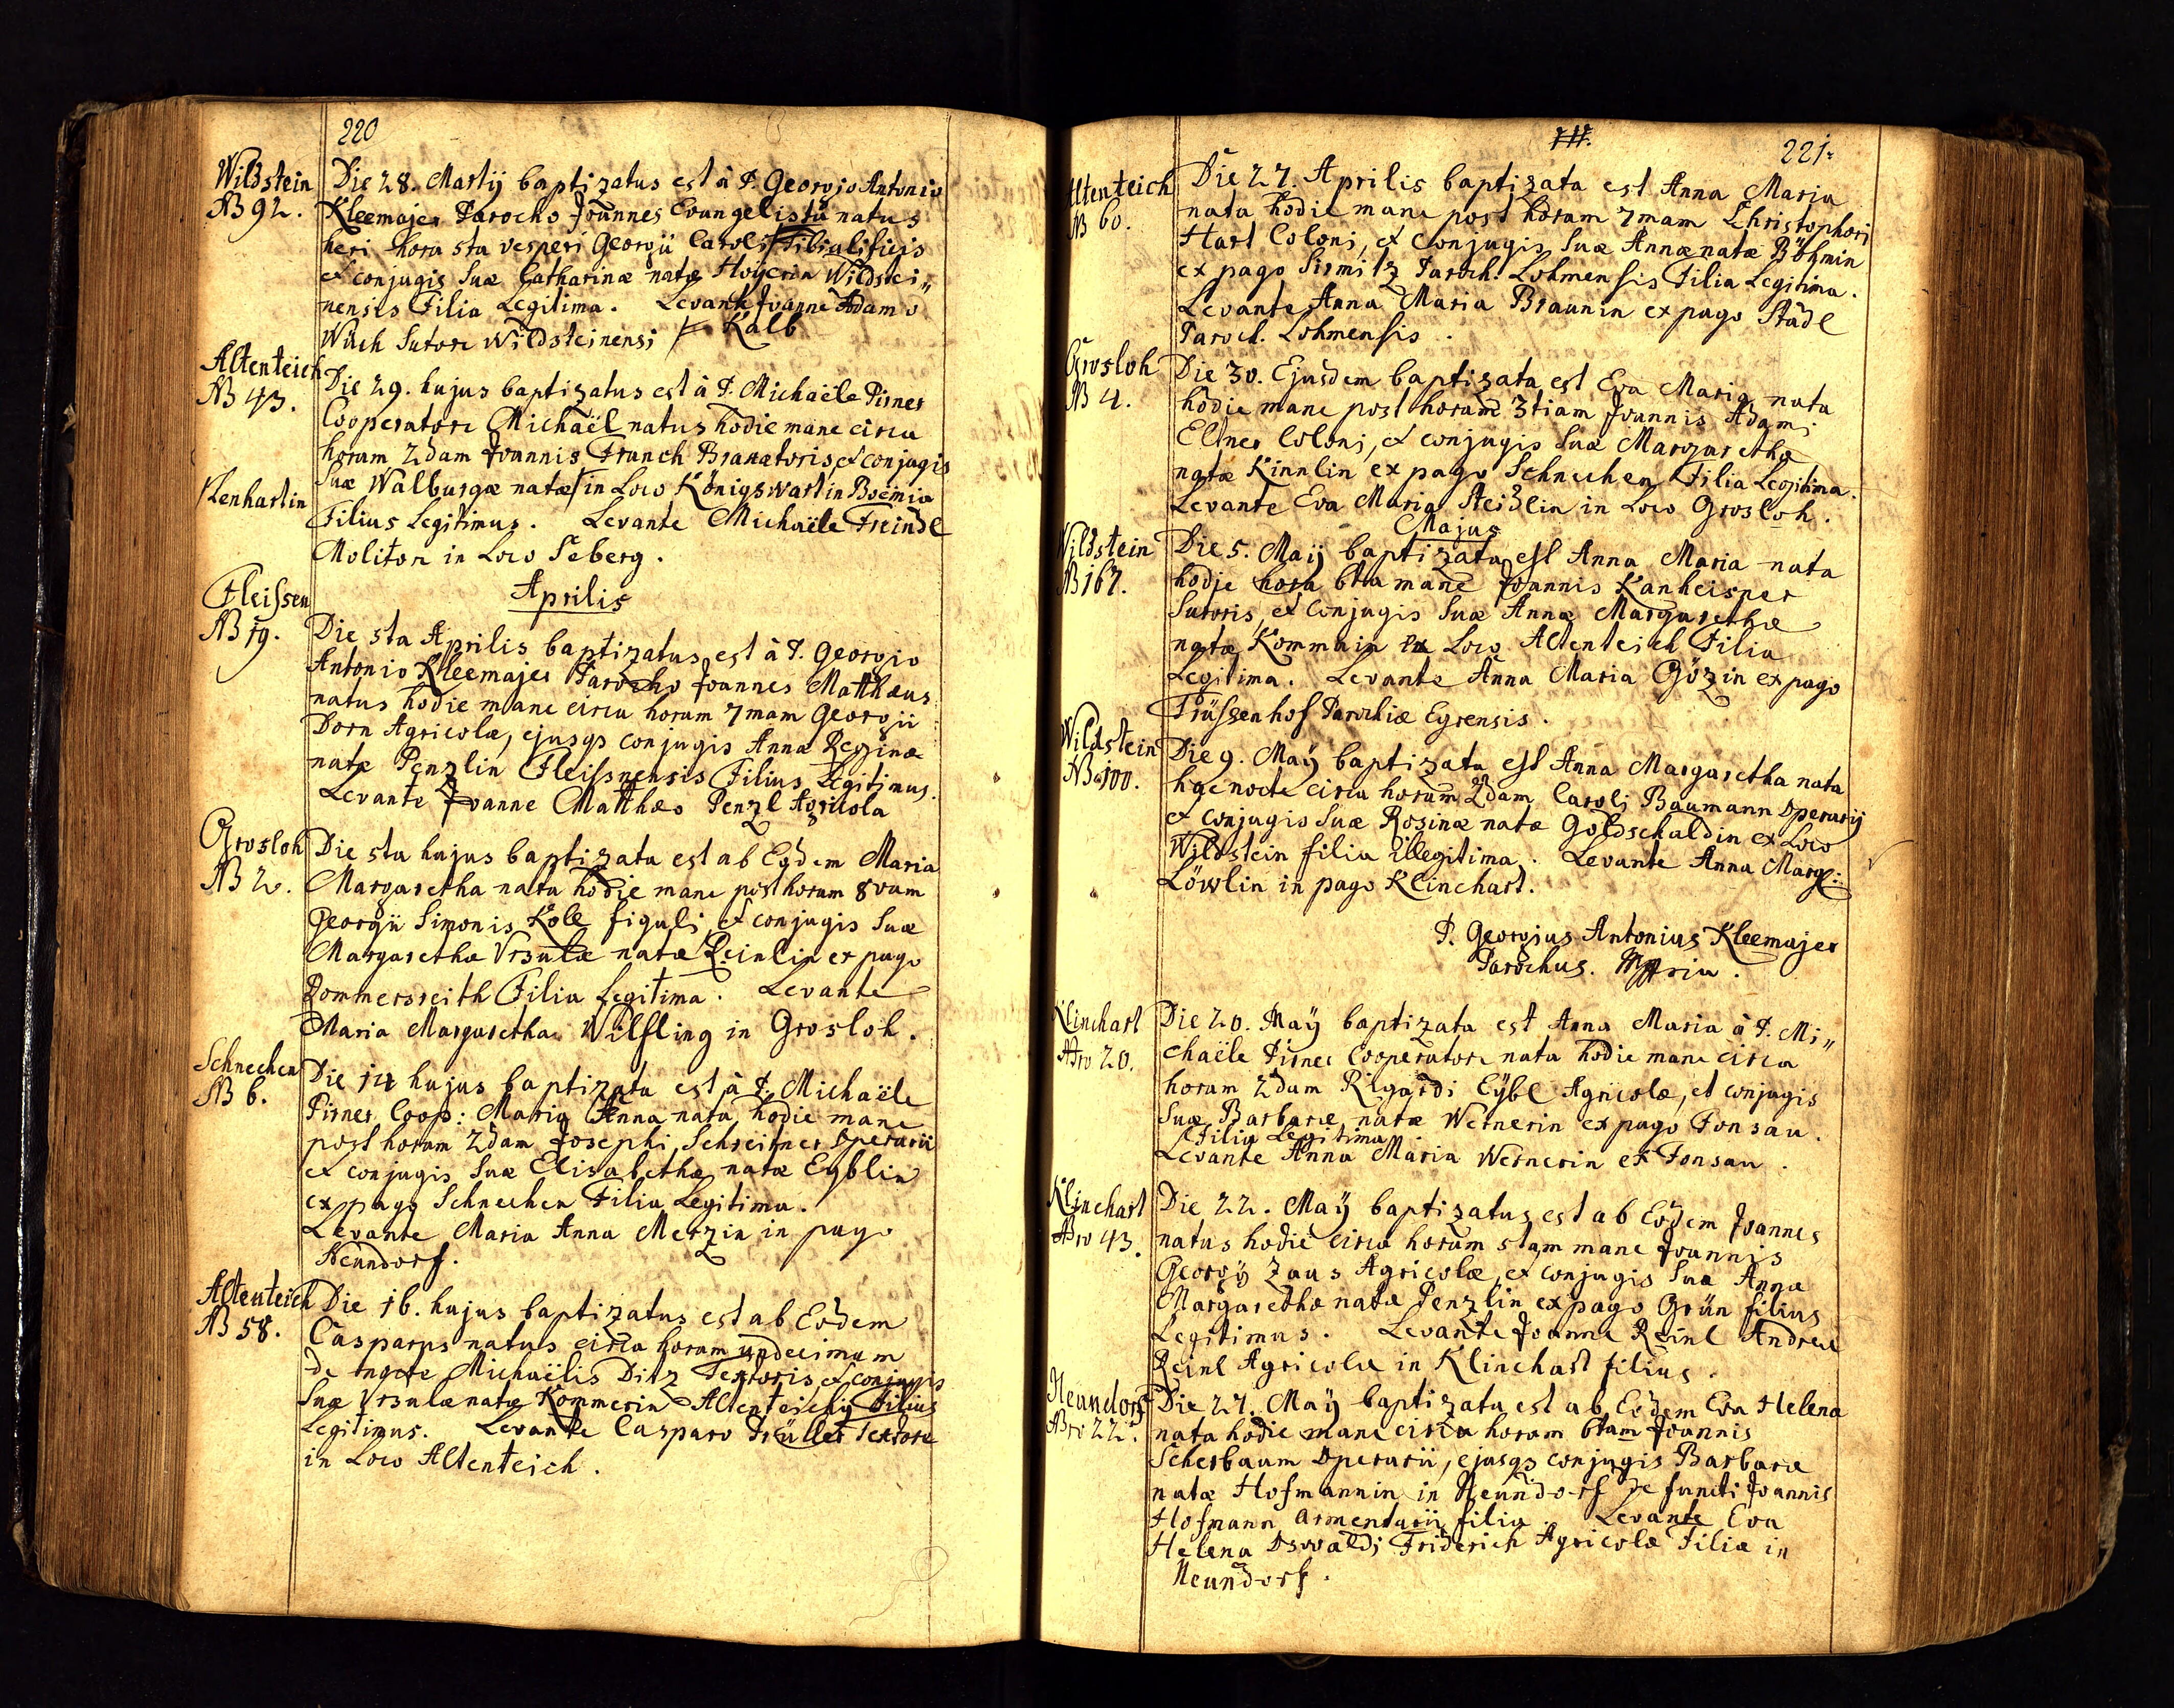 220
Wildstein
NB 92.
Die 28. Martij baptizatus est à P. Georgio Antonio
Kleemajer Parocho Joannes Evangelista natus
heri hora 5ta vesperi Georgii Caroli Tibialificis
et conjugis suæ Catharinæ natæ Wildstei„
nensis Filia Legitima. Levante Joanne Adamo
Wach Sutore Wildsteinensi Kalb
Altenteich
NB 43.
Die 29. hujus baptizatus est à P. Michaële Pirner
Cooperatore Michaël natus hodie mane circa
horam 2dam Joannis Franch et conjugis
Lenhartin
suæ Walburgæ natæ in Loco Königswart in Boemia
Filius Legitimus. Levante Michaële Freindl
Molitore in Loco Seberg.
Aprilis
Fleissen
NB 19.
Die 5ta Aprilis baptizatus est à P. Georgio
Antonio Kleemajer Parocho Joannes Matthæus
natus hodie mane circa horam 7mam Georgii
Dorn Agricolæ, ejusqs conjugis Anna Reginæ
natæ Penzlin Fleissnensis Filius Legitimus.
Levante Joanne Matthæo Penzl Agricola
Grosloh
NB 2.
Die 5ta hujus baptizata est ab Eodem Maria
Margaretha nata hodie mane post horam 8vam
Georgii Simonis Kole figuli, et conjugis suæ
Margarethæ Vrsulæ natæ Reinlin ex pago
Rommersreith Filia Legitima. Levante
Maria Margaretha Wilfling in Grosloh.
Schnecken
NB 6.
Die 14 hujus baptizata est à P. Michaële
Pirner Coop: Maria Anna nata hodie mane
post horam 2dam Josephi Schreitner Operarii
et conjugis suæ Elisabethæ natæ Eyblin
ex pago Schnecken Filia Legitima.
Levante Maria Anna Merzin in pago
Neundorf.
Altenteich
NB 58.
Die 16. hujus baptizatus est ab Eodem
Casparus natus circa horam undecimam
de nocte Michaëlis Ditz Textoris et conjugis
suæ Vrsulæ natæ Kommerin Altenteichij Filius
Legitimus. Levante Casparo Trüller Textore
in Loco Altenteich.
221.
Altenteich
NB 60.
Die 27. Aprilis baptizata est Anna Maria
nata hodie mane post horam 7mam Christophori
Hart Coloni, et conjugis suæ Annæ natæ Böhmin
ex pago Sirmitz Paroch. Lohmensis Filia Legitima.
Levante Anna Maria Braunin ex pago Stadl
Paroch. Lohmensis.
Grosloh
NB 4.
Die 30. Ejusdem baptizata est Eva Maria nata
hodie mane post horam 3tiam Joannis Adami
Ellner Coloni, et conjugis suæ Margarethæ
natæ Kinnlin ex pago Schnecken Filia Legitima.
Levante Eva Maria Steidlin in Loco Grosloh.
Majus
Wildstein
NB 167.
Die 5. Maÿ baptizata est Anna Maria nata
hodie hora 6ta mane Joannis Kanheisper
Sutoris, et conjugis suæ Annæ Margarethæ
natæ Kommain ex Loco Altenteich Filia
Legitima. Levante Anna Maria Gözin ex pago
Trüssenhof Parochiæ Egrensis.
Wildstein
NB 100.
Die 9. Maÿ baptizata est Anna Margaretha nata
hac nocte circa horam 2dam Caroli Baumann Operarij
et conjugis suæ Rosinæ natæ Goldschaldin ex Loco
Wildstein filia illegitima. Levante Anna Marg:
Löwlin in pago Klinchart.
P. Georgius Antonius Kleemajer
Parochus. Mppria.
Klinchart
Nro 20.
Die 20. Maÿ baptizata est Anna Maria à P. Mi„
chaële Pirner Cooperatore nata hodie mane circa
horam 2dam Rigardi Eÿbl Agricolæ, et conjugis
suæ Barbaræ natæ Wernerin ex pago Fonsau.
Filia Legitima
Levante Anna Maria Wernerin ex Fonsau.
Klinchart
Nro 43.
Die 22. Maÿ baptizatus est ab Eodem Joannes
natus hodie circa horam 5tam mane Joannis
Georgij Zaus Agricolæ, et conjugis suæ Annæ
Margarethæ natæ Penzlin ex pago Grün filius
Legitimus. Levante Joanne Reinl Andreæ
Reinl Agricolæ in Klinchart filius.
Neundorf
Nro 22.
Die 27. Maÿ baptizata est ab Eodem Eva Helena
nata hodie mane circa horam 6tam Joannis
Scherbaum Operarii, ejusqs conjugis Barbaræ
natæ Hofmannin in Neundorf defuncti Joannis
Hofmann Armentarii filia. Levante Eva
Helena Oswaldi Friderich Agricolæ Filia in
Neundorf.